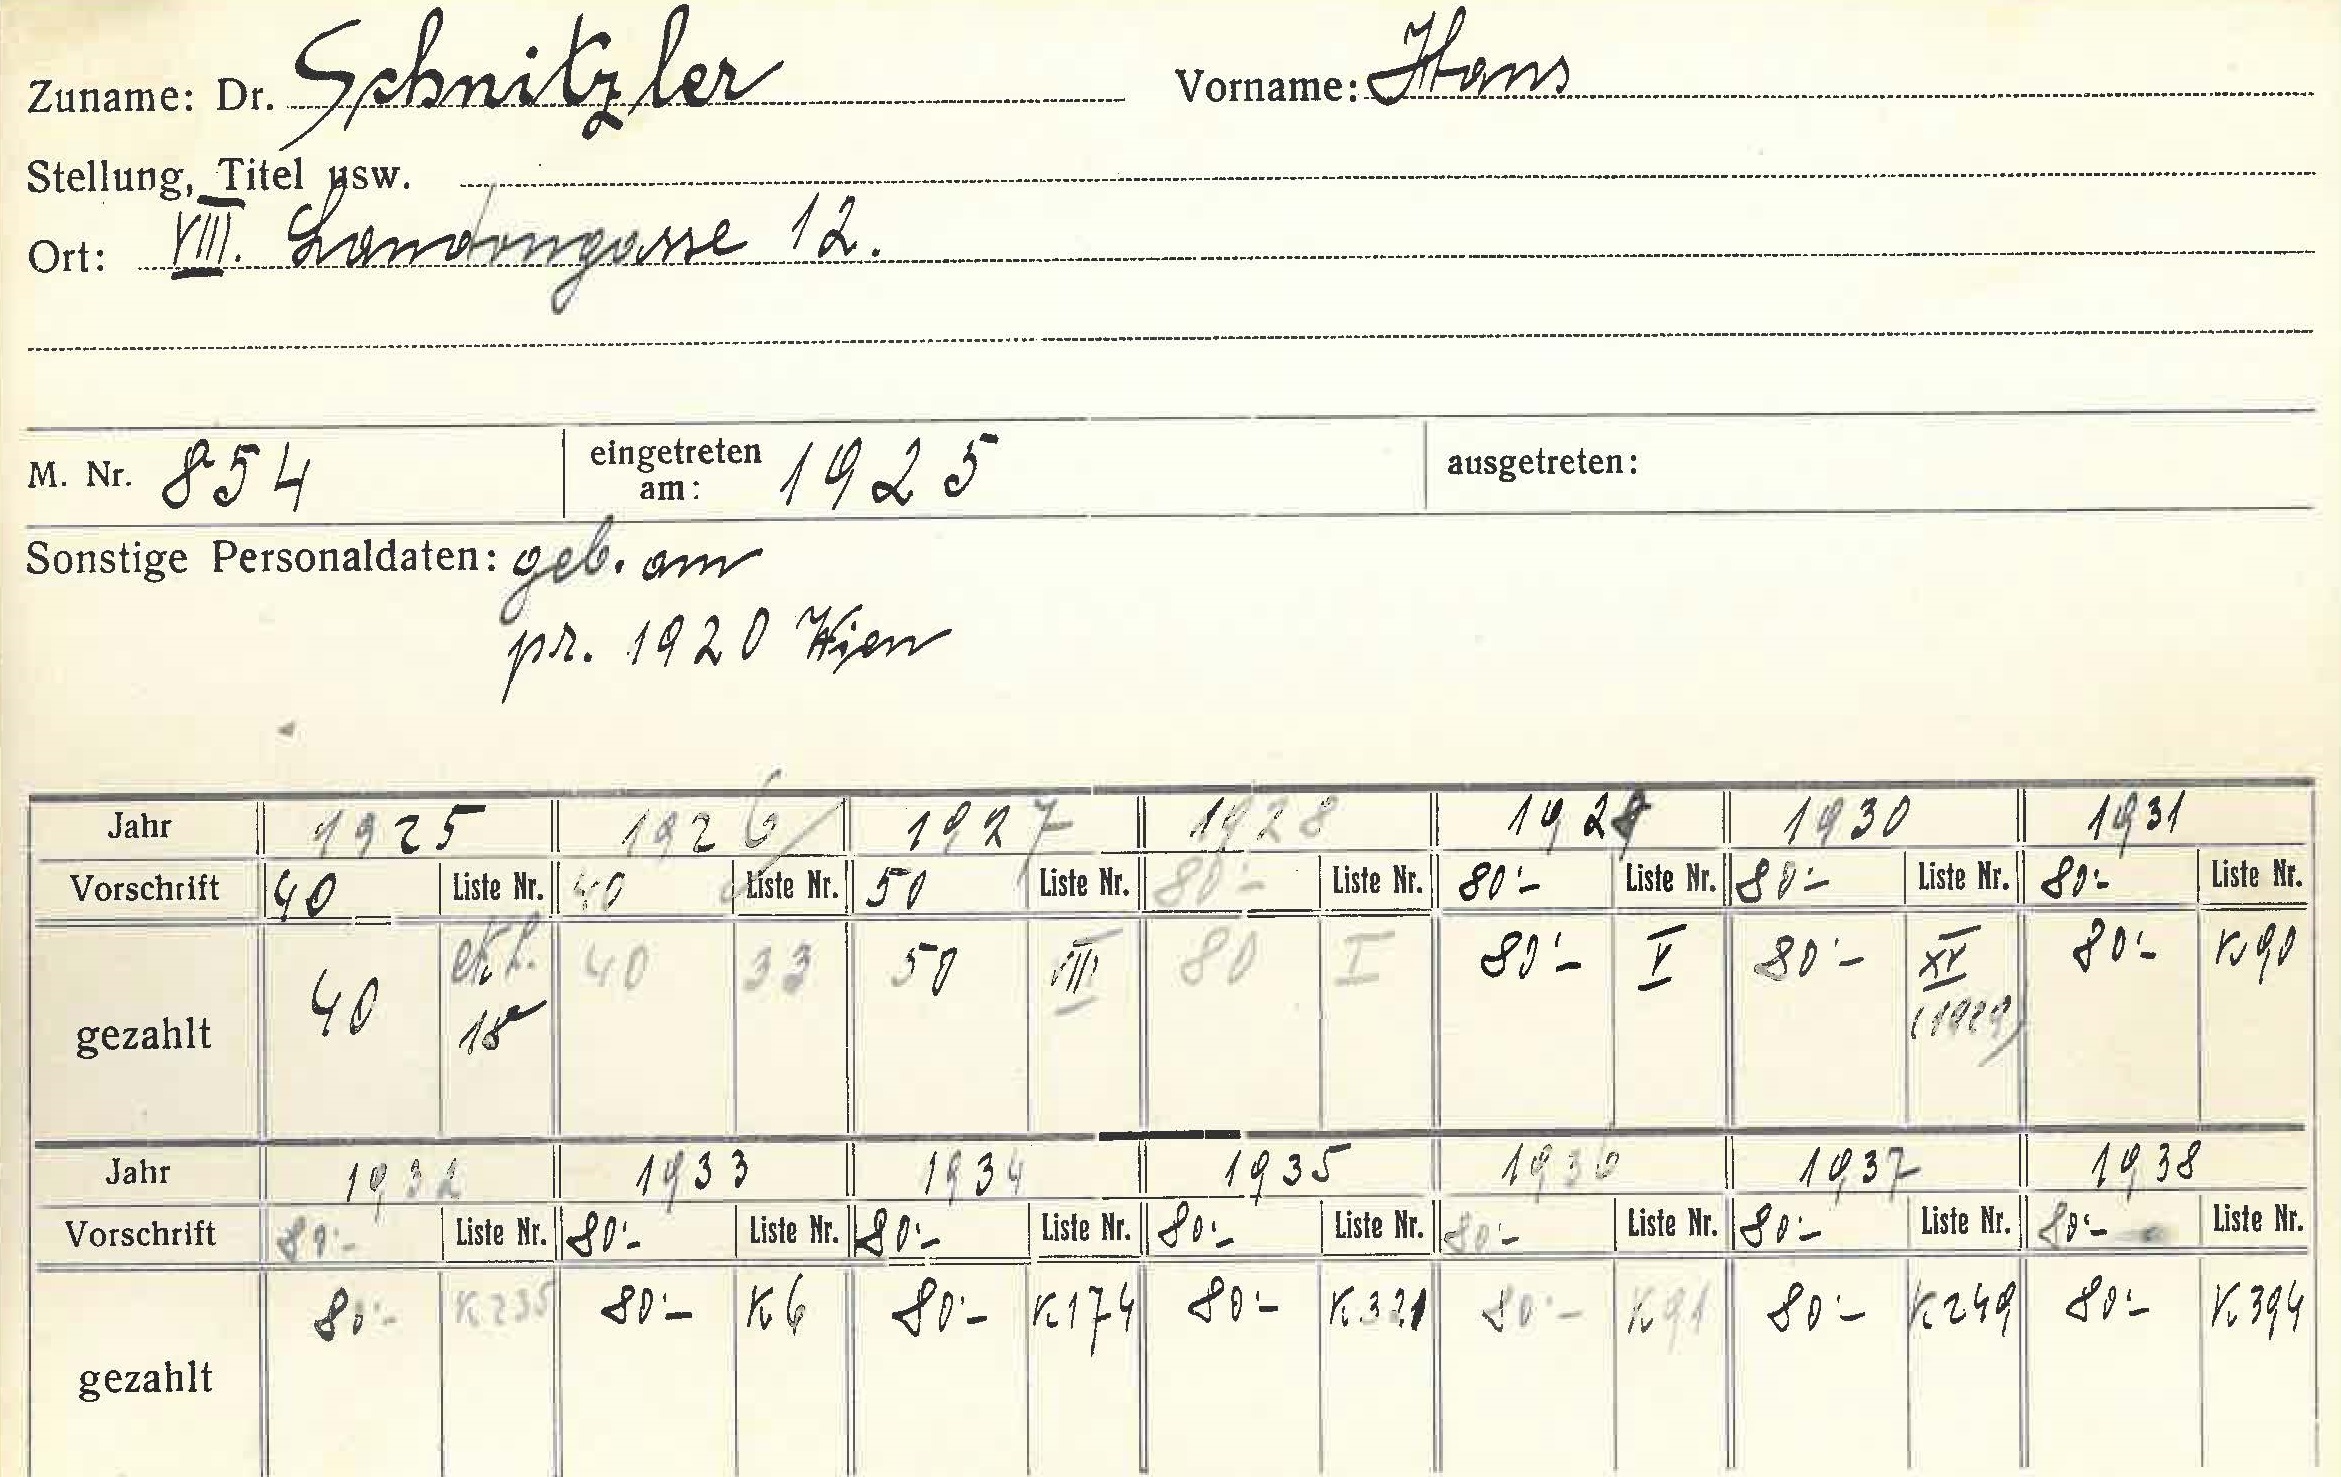 Zuname: Dr. Schnitzler Vorname: Hans
Stellung, Titel usw.
Ort: VIII. Landongasse 12.
M. Nr. 854 eingetreten am: 1925 ausgetreten:
Sonstige Personaldaten: geb. am
pr. 1920 Wien
Jahr 1925 1926 1927 1928 1929 1930 1931
Vorschrift 40 Liste Nr. 40 Liste Nr. 50 Liste Nr. 80·- Liste Nr. 80·- Liste Nr. 80·- Liste Nr. 80·- Liste Nr.
gezahlt 40 18 40 33 50 VIII 80 I 80·- V 80·- XV (1929) 80·- K 90
Jahr 1932 1933 1934 1935 1936 1937 1938
Vorschrift 80·- Liste Nr. 80·- Liste Nr. 80·- Liste Nr. 80·- Liste Nr. 80·- Liste Nr. 80·- Liste Nr. 80·- Liste Nr.
gezahlt 80·- K 235 80·- K 6 80·- K 174 80·- K 321 80·- K 91 80·- K 249 80·- K 394